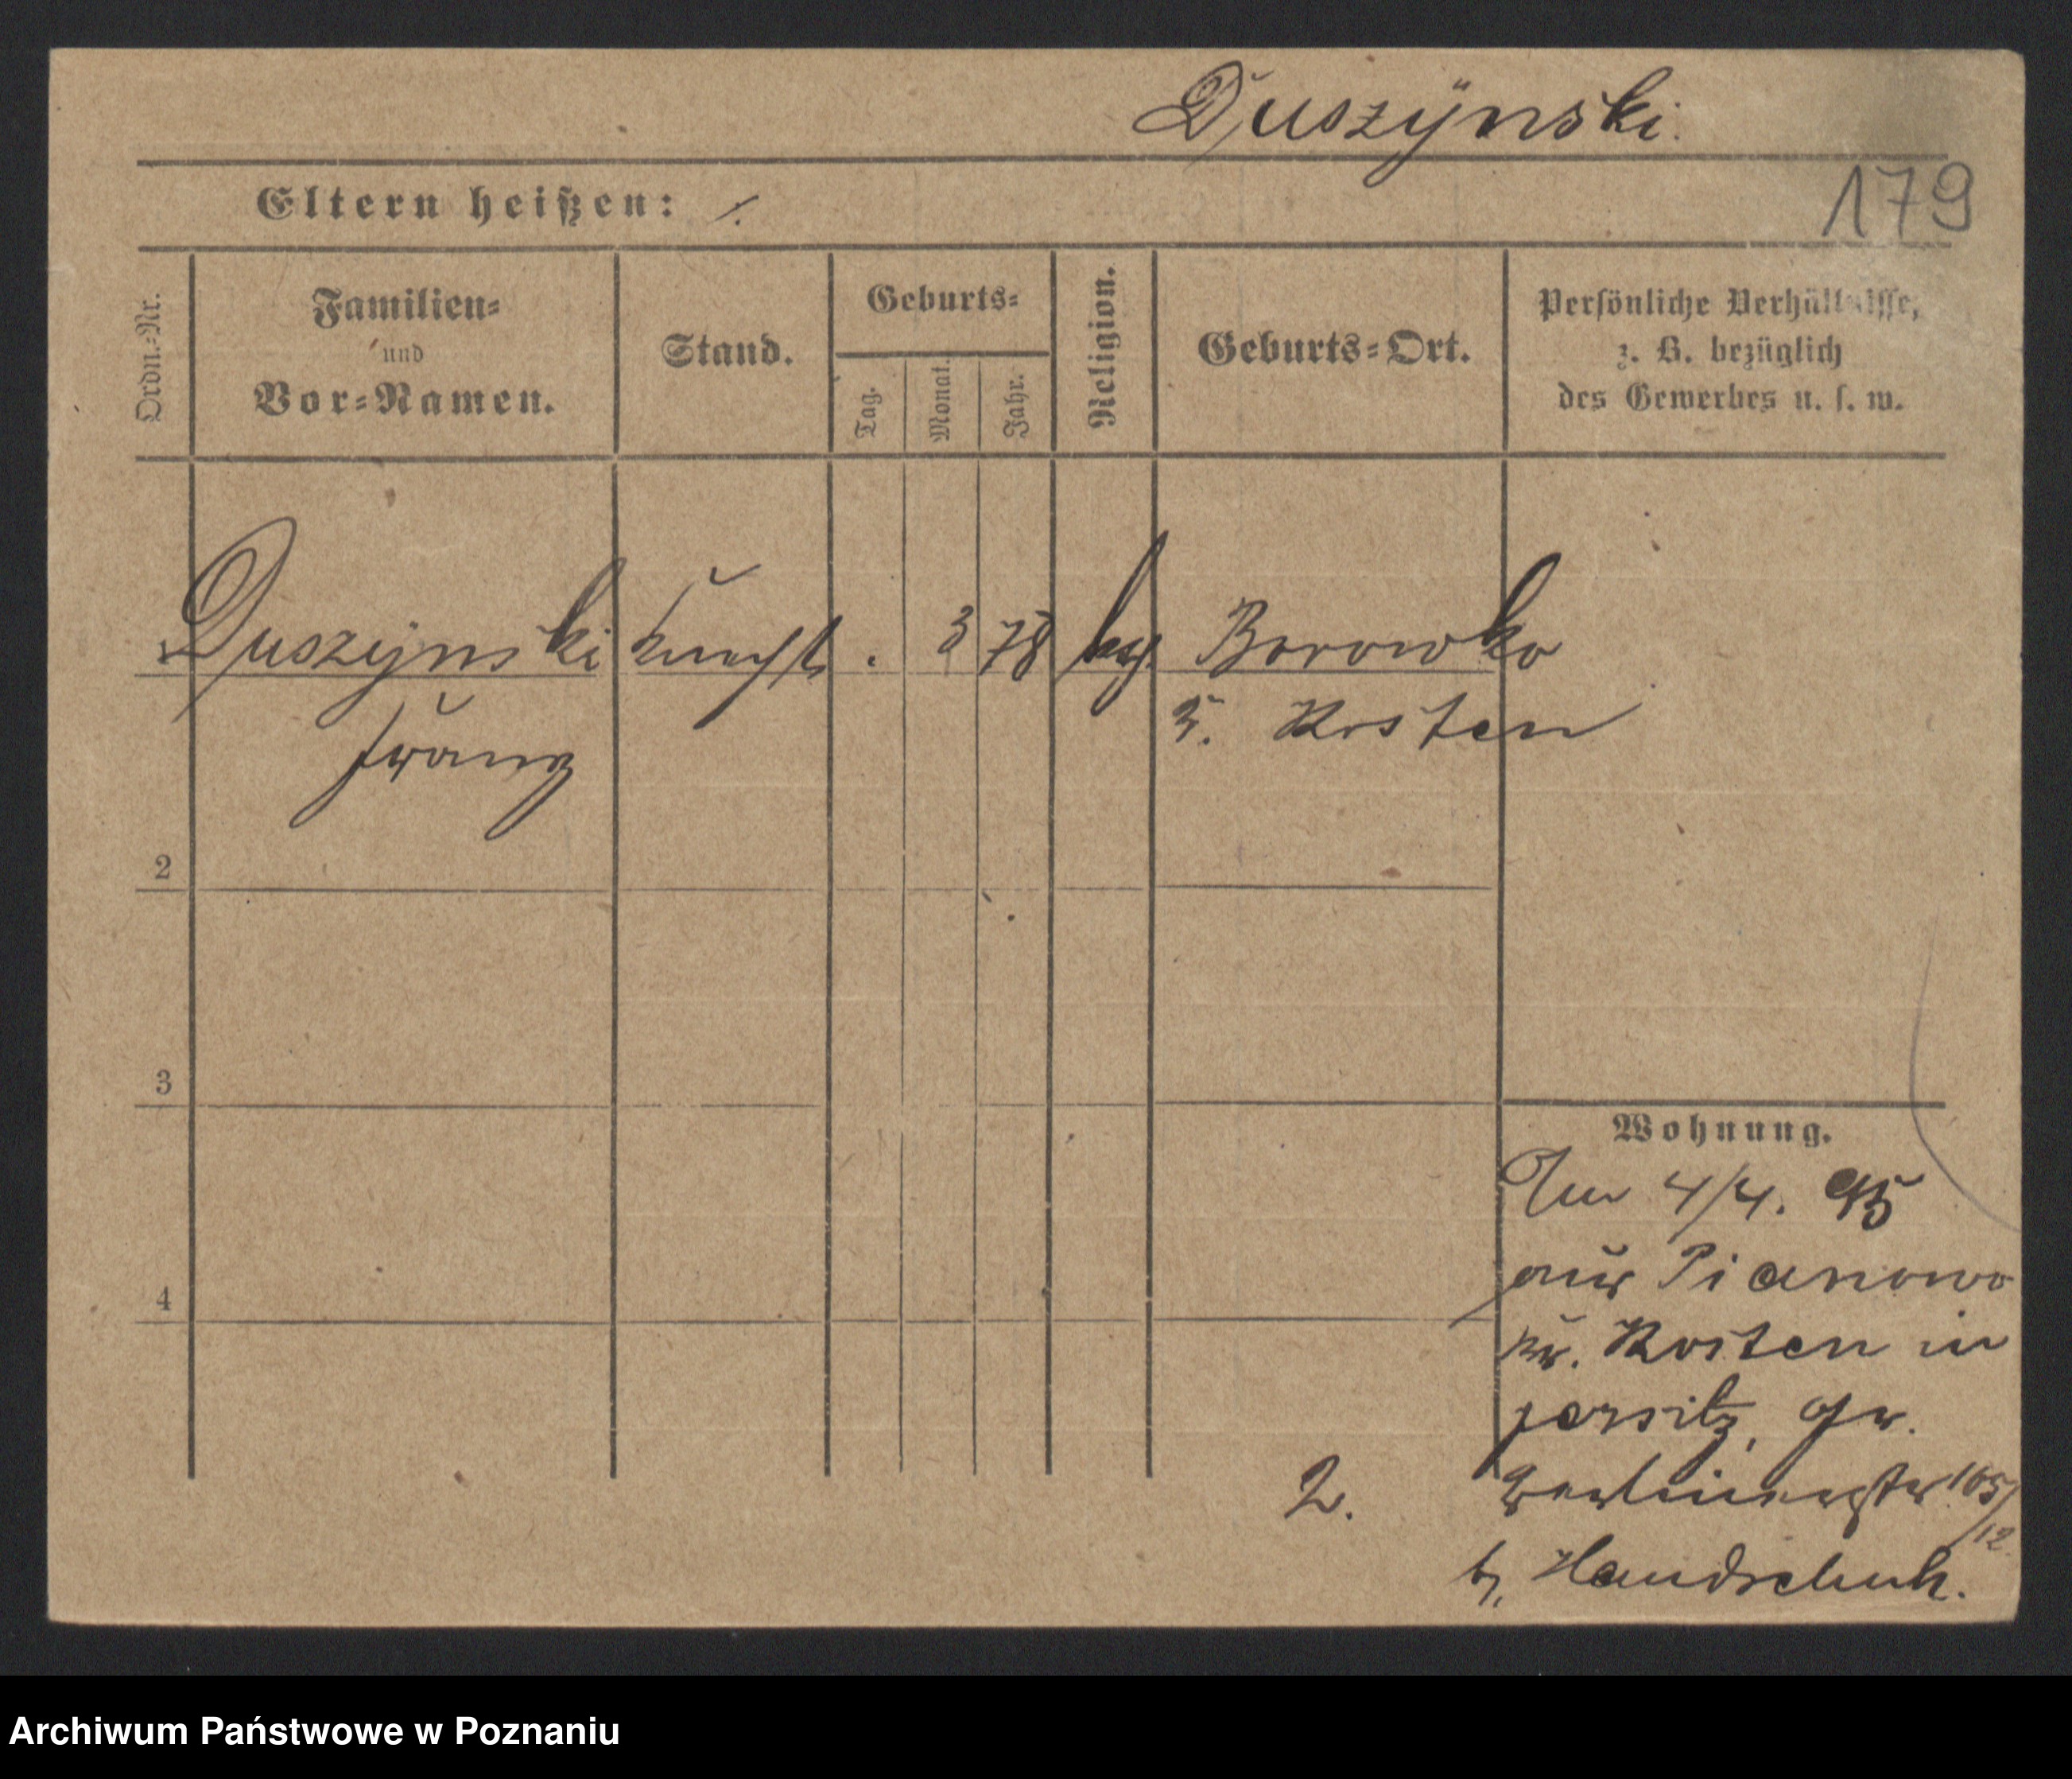 Duszÿnski.
179
Eltern heißen: /.
Ordn.-Nr.
Familien- und Vor-Namen.
Stand.
Geburts-
Tag.
Monat.
Jahr.
Religion.
Geburts-Ort.
Persönliche Verhältnisse,
z. B. bezüglich
des Gewerbes u. s. w.
Duszÿnski
. 3 78
Borowko
Kosten
Franz
2
3
4
Wohnung.
Am 4/4. 95
aus Pianowo
Kr. Kosten in
Jersitz, Gr.
Berlinerstr 105/
12
2.
b, Handschuh.
Archiwum Państwowe w Poznaniu